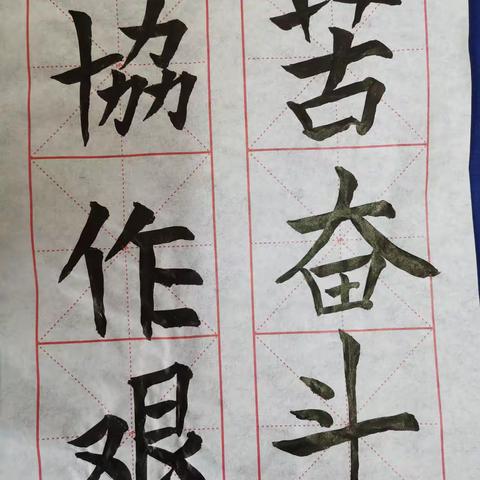 協作艰
苦奋斗